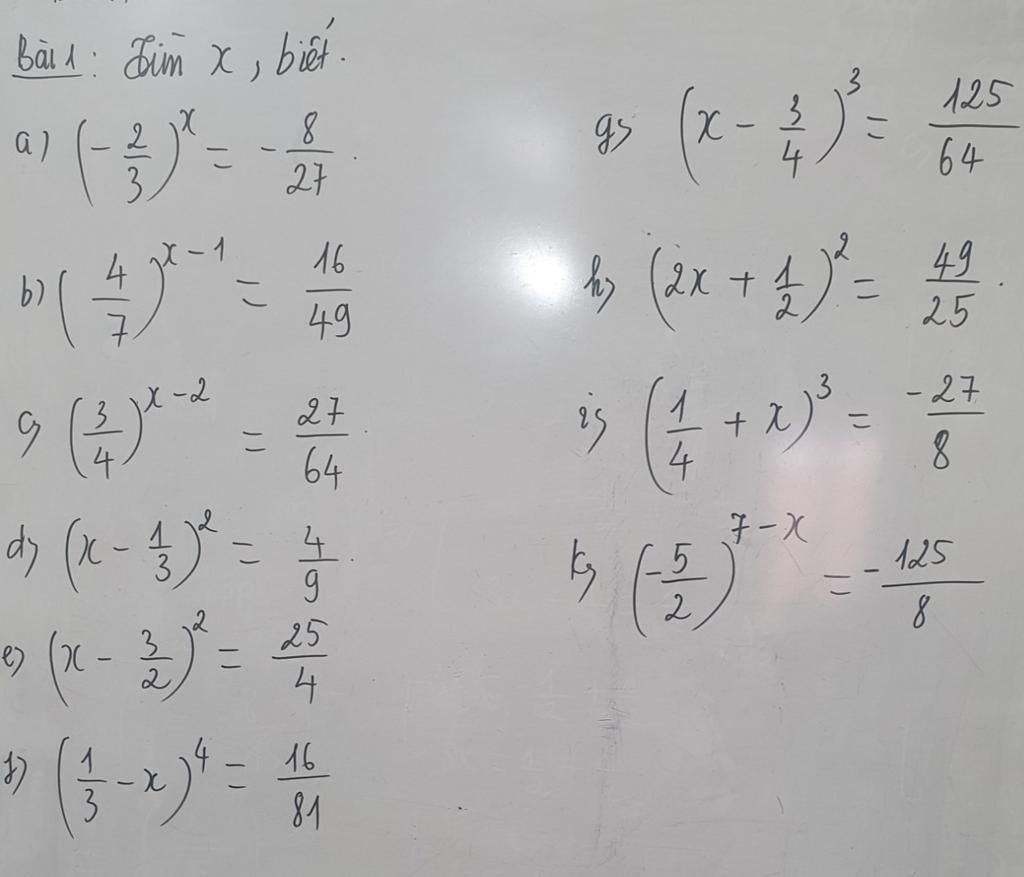 Bài 1 : Tìm x, biết.
a) (-2/3)^x = -8/27.
b) (4/7)^(x-1) = 16/49
c) (3/4)^(x-2) = 27/64.
d) (x - 1/3)^2 = 4/9.
e) (x - 3/2)^2 = 25/4
f) (1/3 - x)^4 = 16/81
g) (x - 3/4)^3 = 125/64
h) (2x + 1/2)^2 = 49/25.
i) (1/4 + x)^3 = -27/8
k) (-5/2)^(7-x) = -125/8